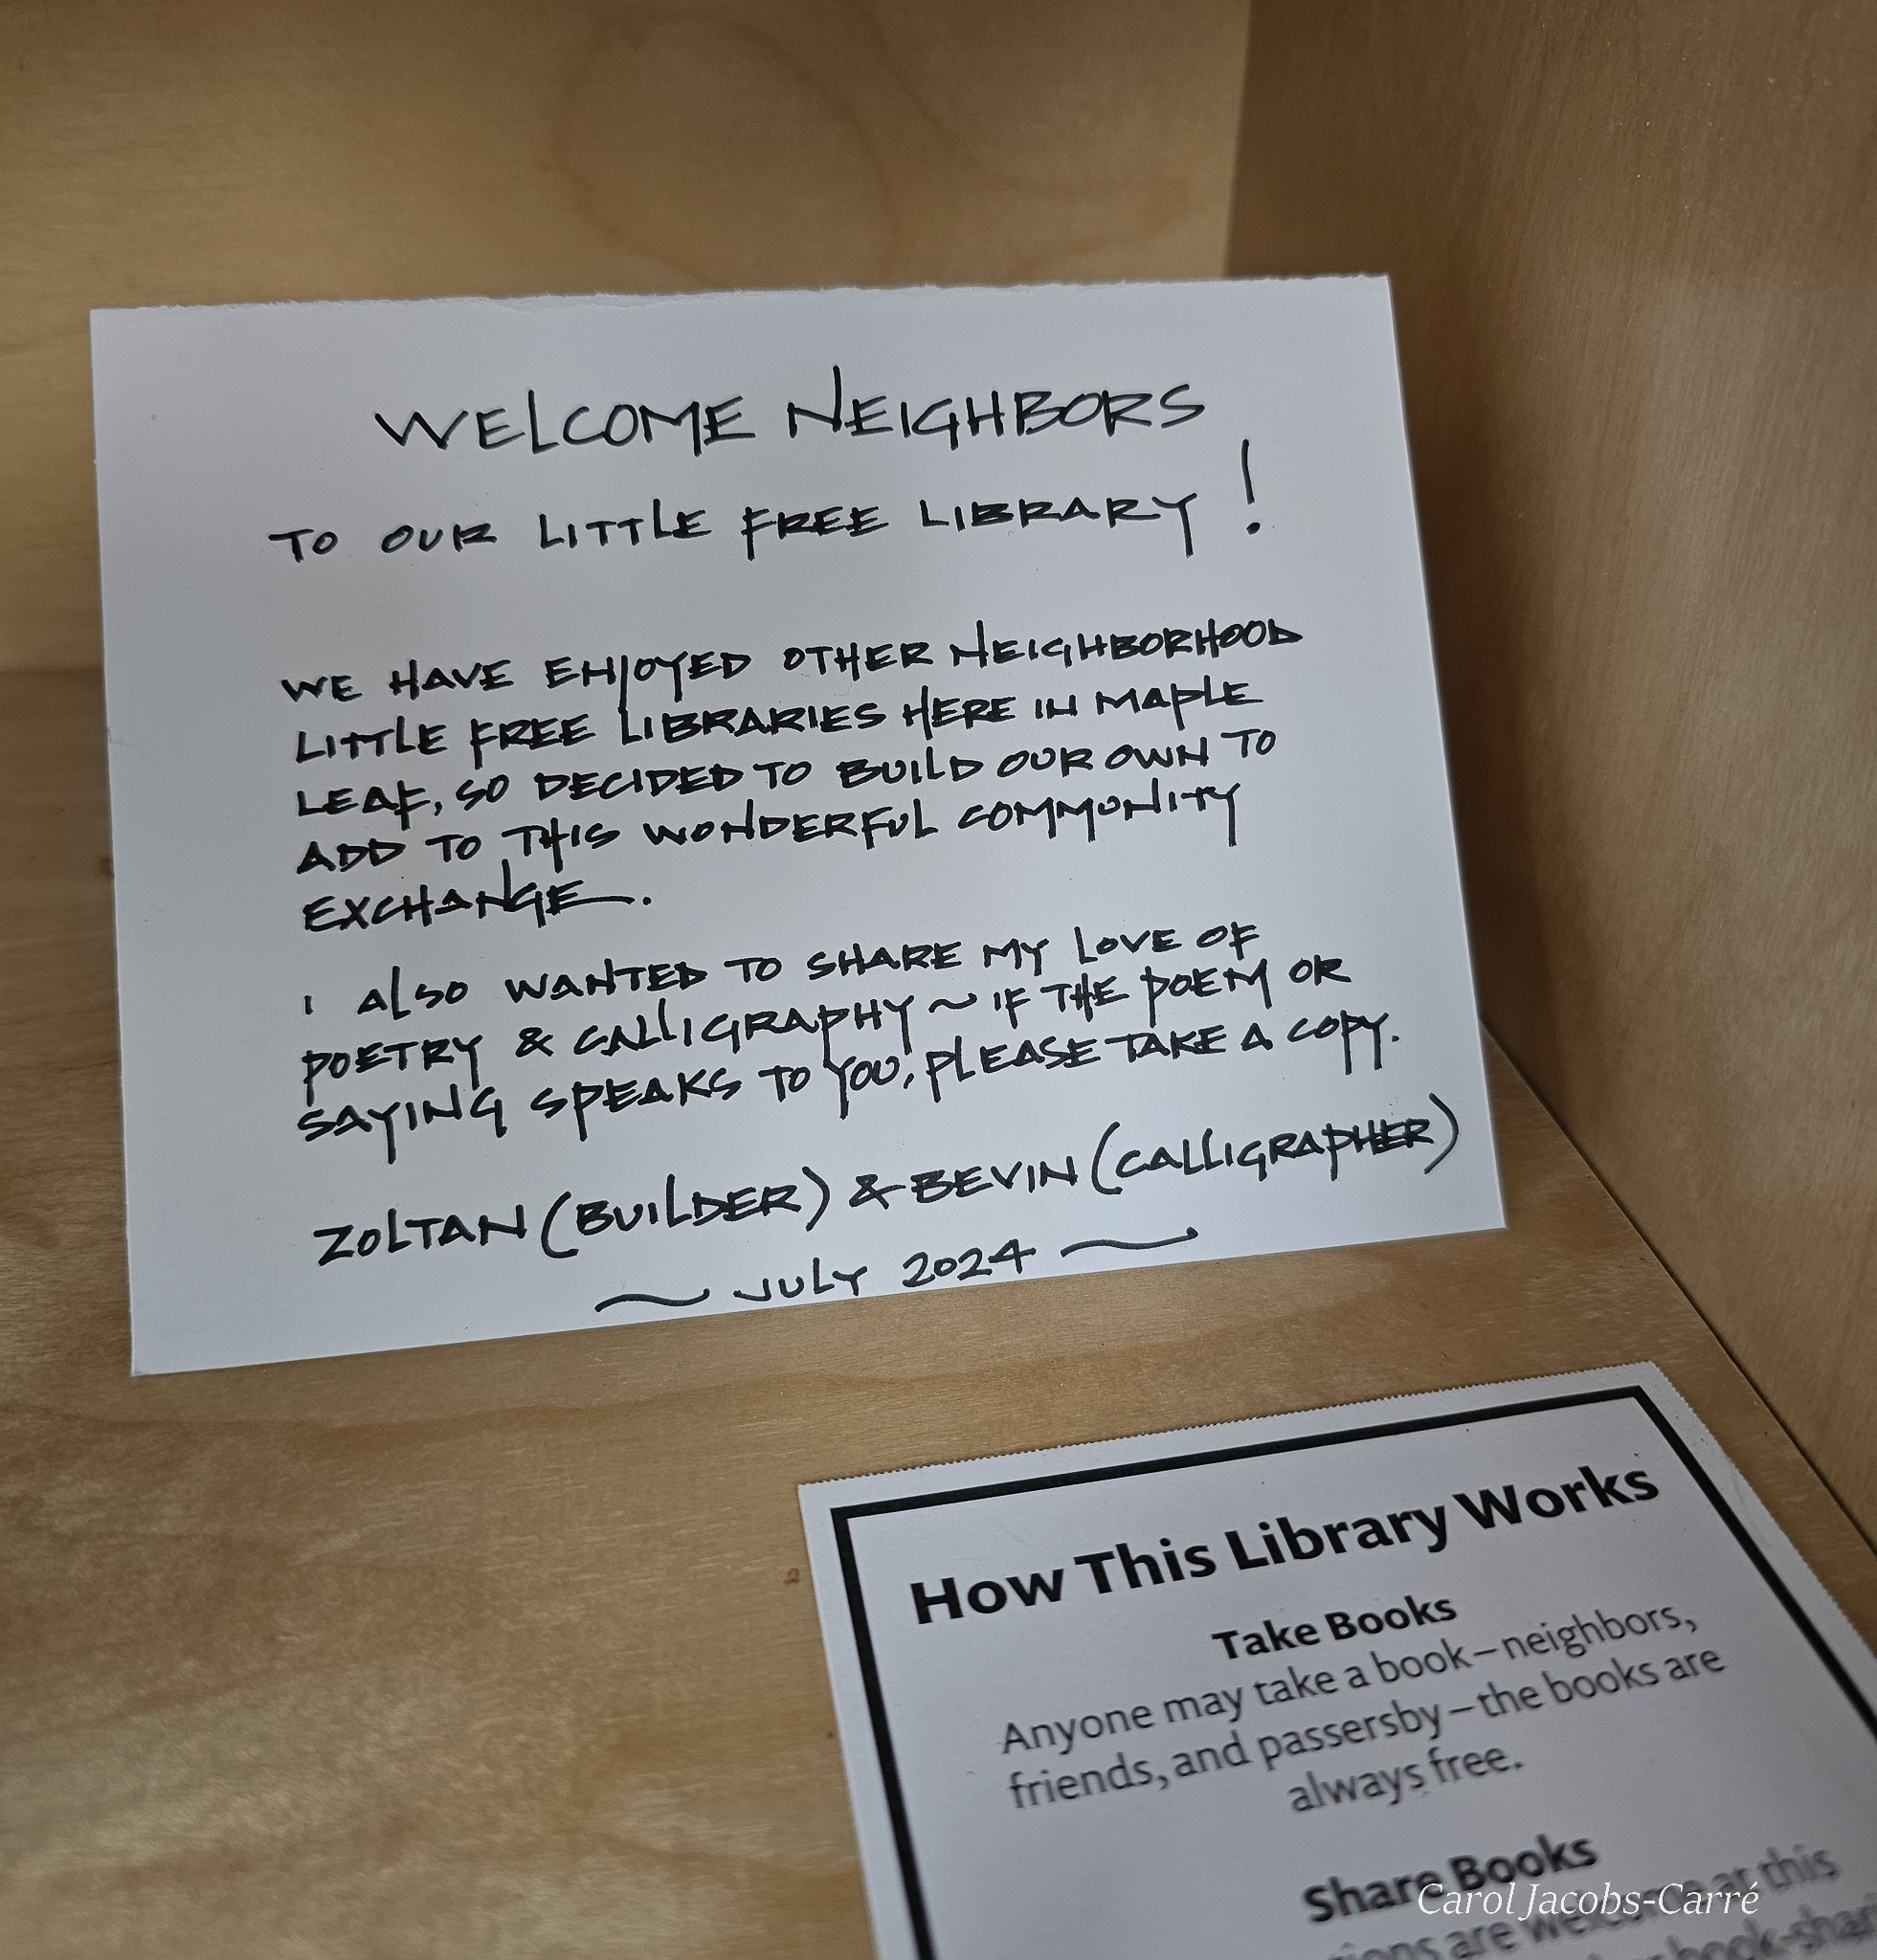 WELCOME NEIGHBORS
TO OUR LITTLE FREE LIBRARY!
WE HAVE ENJOYED OTHER NEIGHBORHOOD
LITTLE FREE LIBRARIES HERE IN MAPLE
LEAF, SO DECIDED TO BUILD OUR OWN TO
ADD TO THIS WONDERFUL COMMUNITY
EXCHANGE.
I ALSO WANTED TO SHARE MY LOVE OF
POETRY & CALLIGRAPHY ~ IF THE POEM OR
SAYING SPEAKS TO YOU, PLEASE TAKE A COPY.
ZOLTAN (BUILDER) & BEVIN (CALLIGRAPHER)
~ JULY 2024 ~
How This Library Works
Take Books
Anyone may take a book–neighbors,
friends, and passersby–the books are
always free.
Share Books
are welcome at this
Carol Jacobs-Carré